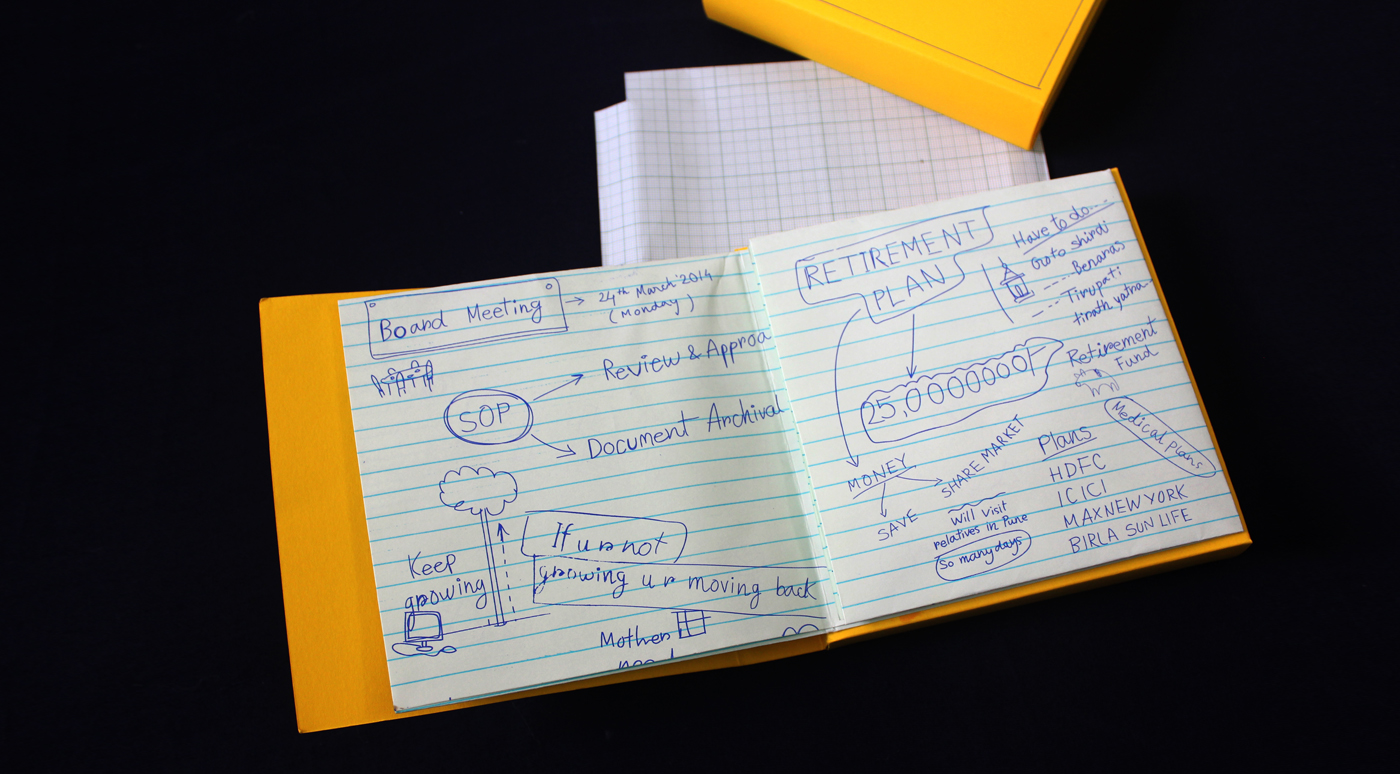 Board Meeting → 24th March'2014
(Monday)
SOP
Review & Approa
Document Archival
Keep
growing
If u r not
growing u r moving back
Mother
RETIREMENT
PLAN
Have to do....
Goto shirdi
---- Benaras
-- Tirupati
tirath yatna
25,0000000F
Retirement
Fund
Medical plans
MONEY
SHARE MARKET
SAVE
will visit
relatives in Pune
So many days
Plans
HDFC
ICICI
MAXNEWYORK
BIRLA SUN LIFE